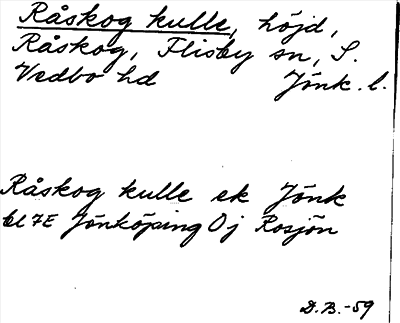 Råskog kulle, höjd,
Råskog, Flisby sn, S.
Vedbo hd Jönk. l.
Råskog kulle ek Jönk
bl 7E Jönköping Öj Rosjön
D.B.-59